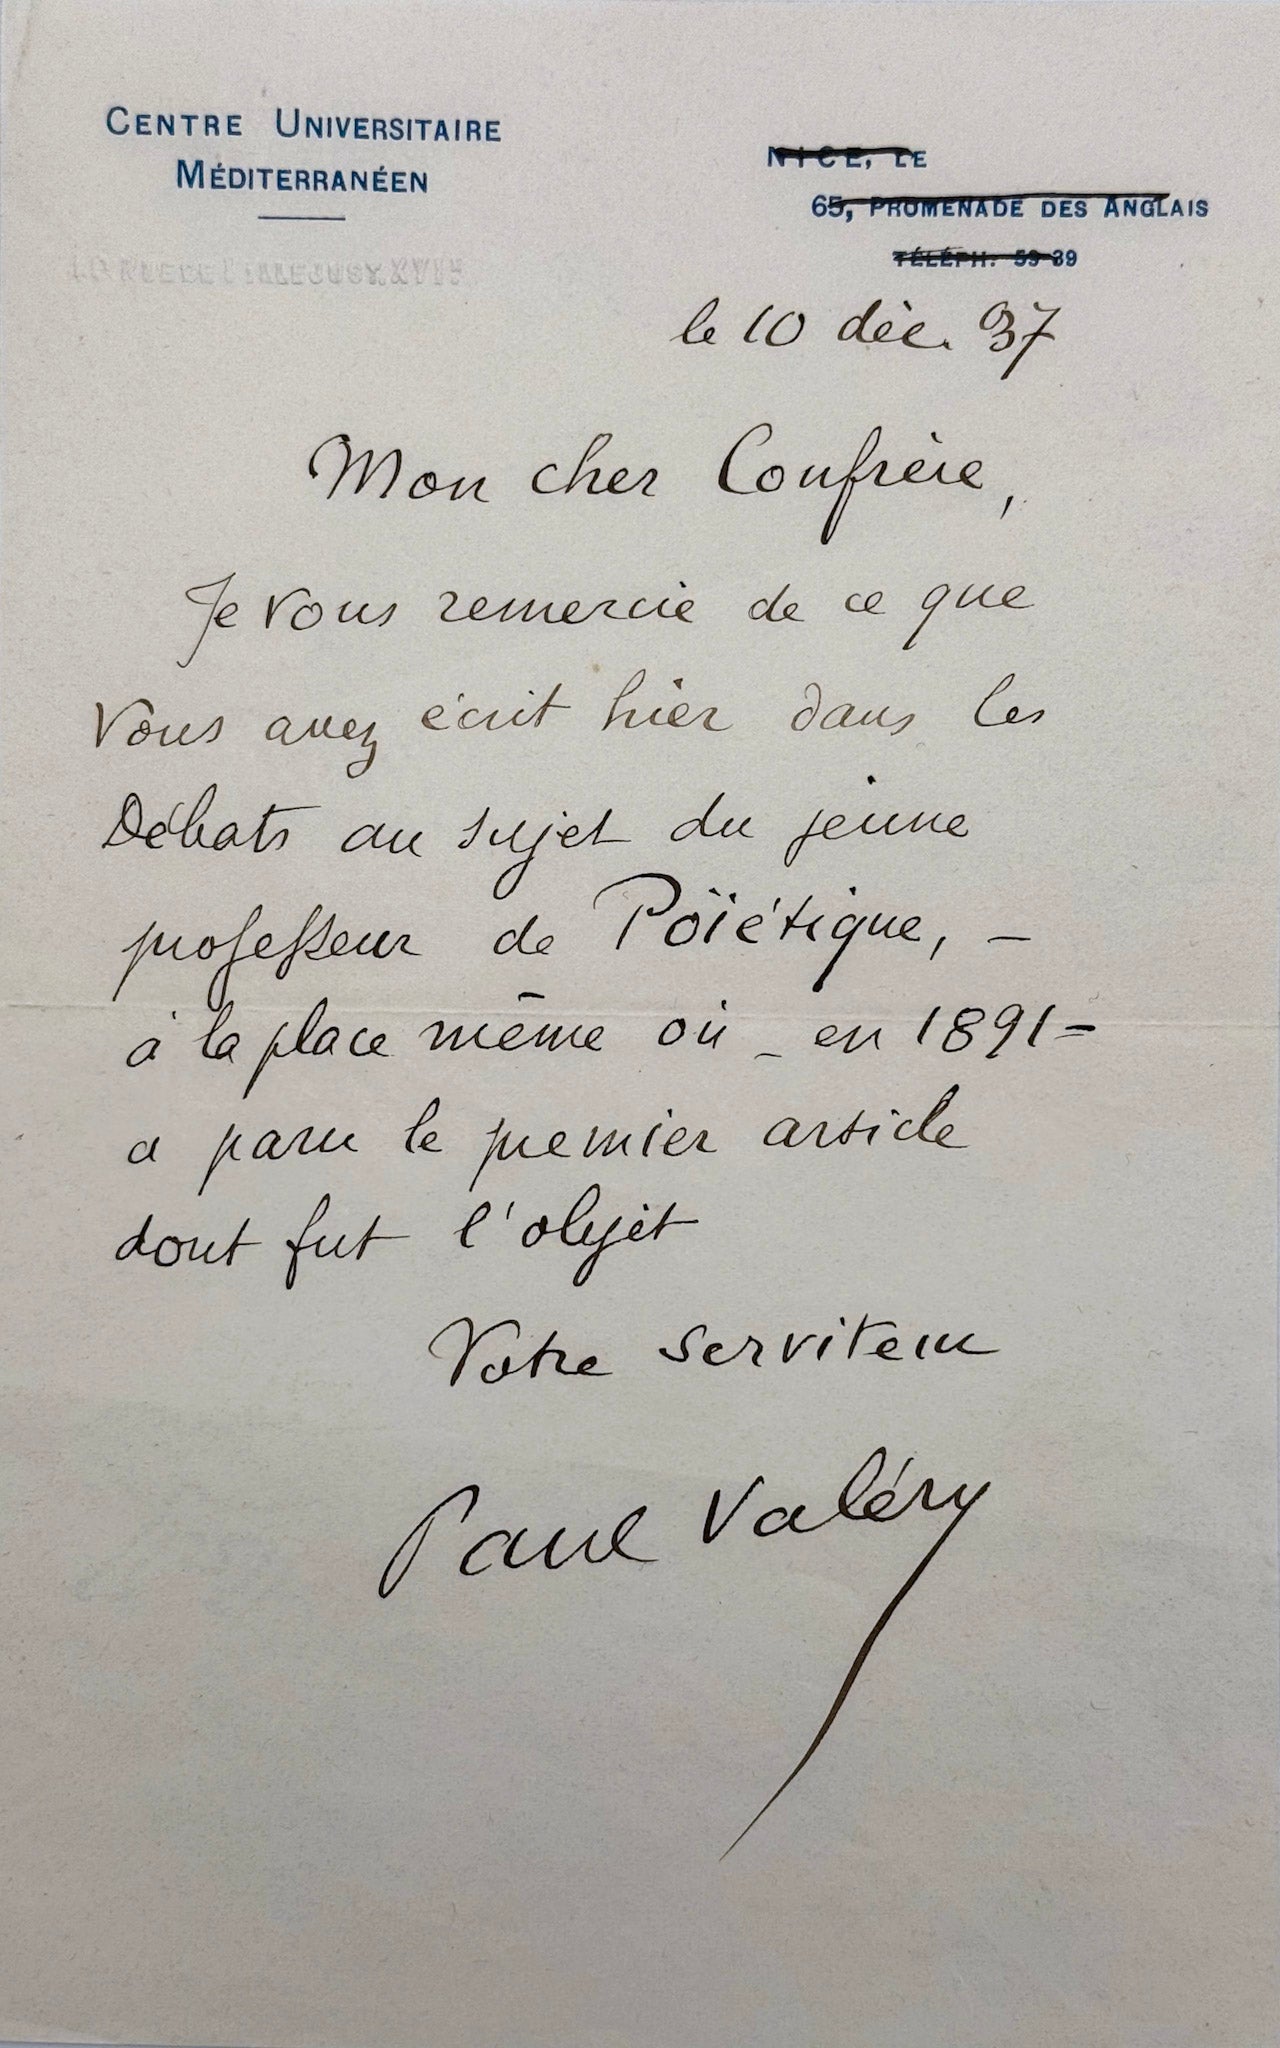 CENTRE UNIVERSITAIRE
MÉDITERRANÉEN
NICE, LE
65, PROMENADE DES ANGLAIS
TÉLÉPH. 59-39
le 10 déc. 37
Mon cher Confrère,
Je vous remercie de ce que
vous avez écrit hier dans les
Débats au sujet du jeune
professeur de Poïétique, –
à la place même où – en 1891 –
a paru le premier article
dont fut l'objet
Votre serviteur
Paul Valéry